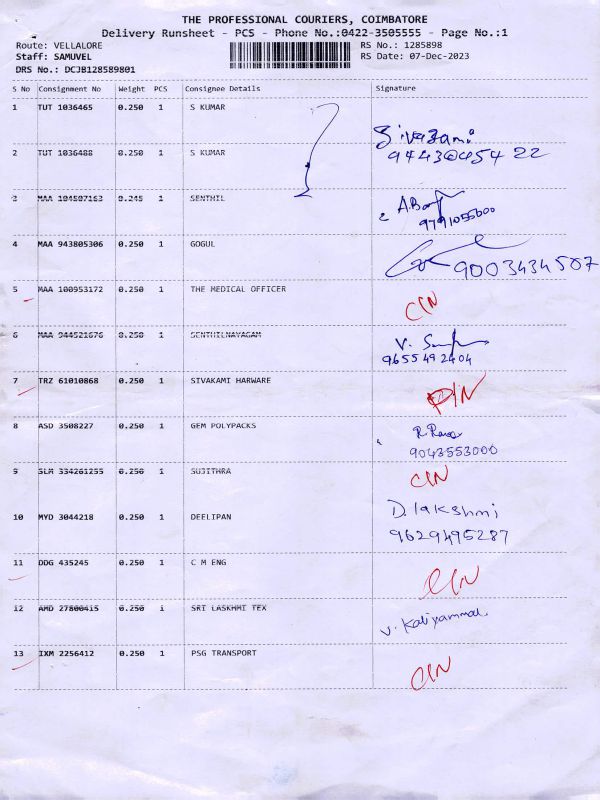 THE PROFESSIONAL COURIERS, COIMBATORE
Delivery Runsheet - PCS - Phone No.:0422-3505555 - Page No.:1
Route: VELLALORE RS No.: 1285898
Staff: SAMUVEL RS Date: 07-Dec-2023
DRS No.: DCJB128589801
S No Consignment No Weight PCS Consignee Details Signature
1 TUT 1036465 0.250 1 S KUMAR
2 TUT 1036488 0.250 1 S KUMAR Sivagami
9443045422
3 MAA 104507163 0.245 1 SENTHIL
9791055600
4 MAA 943805306 0.250 1 GOGUL 9003434507
5 MAA 100953172 0.250 1 THE MEDICAL OFFICER CIN
6 MAA 944521676 0.250 1 SENTHILNAYAGAM V.
9655492404
7 TRZ 61010868 0.250 1 SIVAKAMI HARWARE
8 ASD 3508227 0.250 1 GEM POLYPACKS
9043553000
9 SLM 334261255 0.250 1 SUJITHRA CIN
10 MYD 3044218 0.250 1 DEELIPAN D. lakshmi
9629495287
11 DDG 435245 0.250 1 C M ENG CIN
12 AMD 27800415 0.250 1 SRI LASKHMI TEX V. Kaliyammal
13 IXM 2256412 0.250 1 PSG TRANSPORT CIN